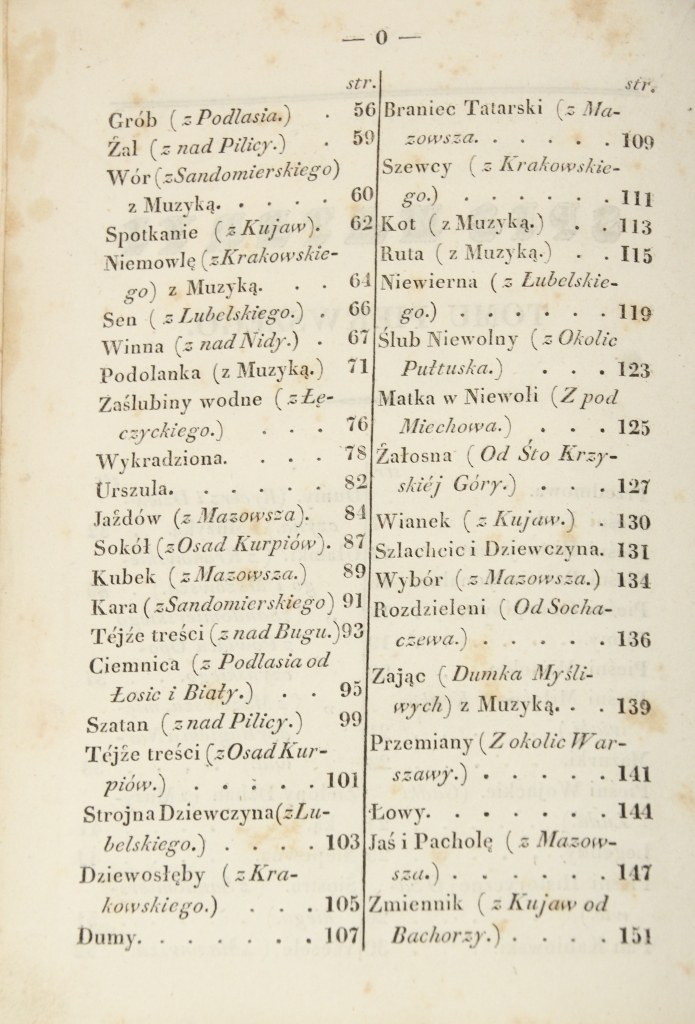 — 0 —
str.
Grób (z Podlasia.) . 56
Żal (z nad Pilicy.) . 59
Wór (z Sandomierskiego)
z Muzyką. . . . . 60
Spotkanie (z Kujaw). 62
Niemowlę (z Krakowskie-
go) z Muzyką. . . 64
Sen (z Lubelskiego.) . 66
Winna (z nad Nidy.) . 67
Podolanka (z Muzyką.) 71
Zaślubiny wodne (z Łę-
czyckiego.) . . . 76
Wykradziona. . . . 78
Urszula. . . . . . 82
Jażdów (z Mazowsza). 84
Sokół (z Osad Kurpiów). 87
Kubek (z Mazowsza.) 89
Kara (z Sandomierskiego) 91
Téjże treści (z nad Bugu.) 93
Ciemnica (z Podlasia od
Łosic i Biały.) . . 95
Szatan (z nad Pilicy.) 99
Téjże treści (z Osad Kur-
piów.) . . . . . 101
Strojna Dziewczyna (z Lu-
belskiego.) . . . . 103
Dziewosłęby (z Kra-
kowskiego.) . . . 105
Dumy. . . . . . . 107
str.
Braniec Tatarski (z Ma-
zowsza. . . . . . 109
Szewcy (z Krakowskie-
go.) . . . . . . 111
Kot (z Muzyką.) . . 113
Ruta (z Muzyką.) . . 115
Niewierna (z Lubelskie-
go.) . . . . . . 119
Ślub Niewolny (z Okolic
Pułtuska.) . . . 123
Matka w Niewoli (Z pod
Miechowa.) . . . 125
Żałosna (Od Śto Krzy-
skiéj Góry.) . . . 127
Wianek (z Kujaw.) . 130
Szlachcic i Dziewczyna. 131
Wybór (z Mazowsza.) 134
Rozdzieleni (Od Socha-
czewa.) . . . . . 136
Zając (Dumka Myśli-
wych) z Muzyką. . . 139
Przemiany (Z okolic War-
szawy.) . . . . . 141
Łowy. . . . . . . 144
Jaś i Pacholę (z Mazow-
sza.) . . . . . . 147
Zmiennik (z Kujaw od
Bachorzy.) . . . . 151